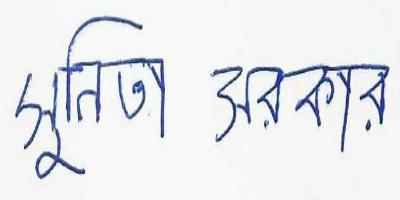 সুনিতা সরকার